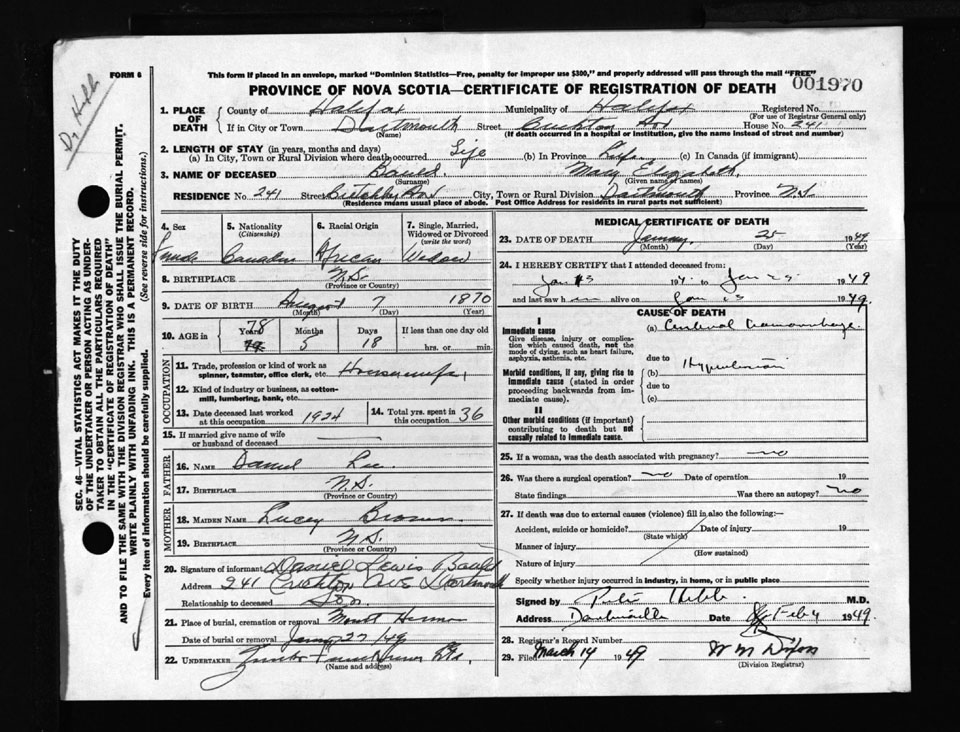 Dr Hebb
FORM 6
This form if placed in an envelope, marked "Dominion Statistics—Free, penalty for improper use $300," and properly addressed will pass through the mail "FREE"
PROVINCE OF NOVA SCOTIA—CERTIFICATE OF REGISTRATION OF DEATH
001970
1. PLACE OF DEATH
County of Halifax Municipality of Halifax Registered No.
(For use of Registrar General only)
If in City or Town Dartmouth Street Crichton House No. 241
(Name) (If death occurred in a hospital or institution, give the name instead of street and number)
2. LENGTH OF STAY (in years, months and days)
(a) In City, Town or Rural Division where death occurred Life (b) In Province Life (c) In Canada (if immigrant)
3. NAME OF DECEASED Mary Elizabeth
(Surname) (Given name or names)
RESIDENCE No. 241 Street City, Town or Rural Division Dartmouth Province N.S.
(Residence means usual place of abode. Post Office Address for residents in rural parts not sufficient)
SEC. 46—VITAL STATISTICS ACT MAKES IT THE DUTY
OF THE UNDERTAKER OR PERSON ACTING AS UNDER-
TAKER TO OBTAIN ALL THE PARTICULARS REQUIRED
IN THE "CERTIFICATE OF REGISTRATION OF DEATH"
AND TO FILE THE SAME WITH THE DIVISION REGISTRAR WHO SHALL ISSUE THE BURIAL PERMIT.
WRITE PLAINLY WITH UNFADING INK. THIS IS A PERMANENT RECORD.
Every item of information should be carefully supplied. (See reverse side for instructions.)
4. Sex
Female
5. Nationality
(Citizenship)
Canadian
6. Racial Origin
African
7. Single, Married, Widowed or Divorced
(write the word)
Widow
8. BIRTHPLACE N.S.
(Province or Country)
9. DATE OF BIRTH August 7 1870
(Month) (Day) (Year)
10. AGE in 78 Years Months Days If less than one day old
79 5 18 hrs. or min.
OCCUPATION
11. Trade, profession or kind of work as
spinner, teamster, office clerk, etc. Housewife
12. Kind of industry or business, as cotton-
mill, lumbering, bank, etc.
13. Date deceased last worked
at this occupation 1924
14. Total yrs. spent in
this occupation 36
15. If married give name of wife
or husband of deceased
FATHER
16. NAME Daniel Lee
17. BIRTHPLACE N.S.
(Province or Country)
MOTHER
18. MAIDEN NAME Lucey Brown
19. BIRTHPLACE N.S.
(Province or Country)
20. Signature of informant Daniel Lewis
Address 241 Crichton Ave Dartmouth
Relationship to deceased Son
21. Place of burial, cremation or removal Mount Hermon
Date of burial or removal Jany 27/49
22. UNDERTAKER Ltd.
(Name and address)
MEDICAL CERTIFICATE OF DEATH
23. DATE OF DEATH January 25 1949
(Month) (Day) (Year)
24. I HEREBY CERTIFY that I attended deceased from:
Jan 194 to Jan 25 1949
and last saw h alive on Jan 1949
CAUSE OF DEATH
I
Immediate cause
Give disease, injury or complica-
tion which caused death, not the
mode of dying, such as heart failure,
asphyxia, asthenia, etc.
(a) Cerebral
due to
Morbid conditions, if any, giving rise to
immediate cause (stated in order
proceeding backwards from im-
mediate cause).
(b) Hypertension
due to
(c)
II
Other morbid conditions (if important)
contributing to death but not
causally related to immediate cause.
25. If a woman, was the death associated with pregnancy? no
26. Was there a surgical operation? no Date of operation 19
State findings Was there an autopsy? no
27. If death was due to external causes (violence) fill in also the following:—
Accident, suicide or homicide? Date of injury 19
(State which)
Manner of injury
(How sustained)
Nature of injury
Specify whether injury occurred in industry, in home, or in public place
Signed by Hebb M.D.
Address Dartmouth Date Feby 1949
28. Registrar's Record Number
29. Filed March 14 1949 W M Dixon
(Division Registrar)